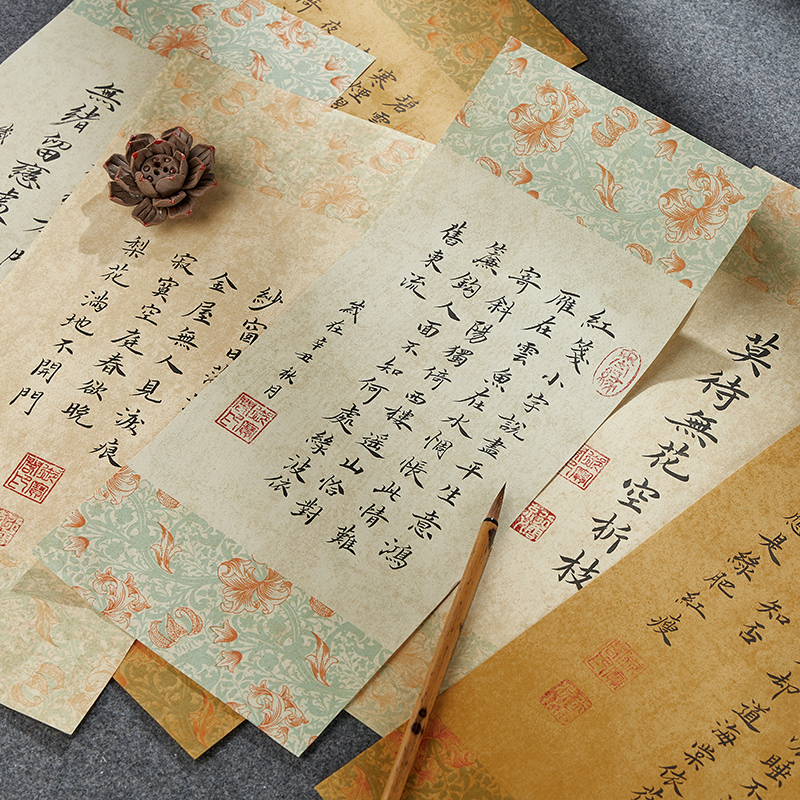 碧雲
寒煙翠
夜
紅箋小字說盡平生意鴻
雁在雲魚在水惆悵此情難
寄斜陽獨倚西樓遙山恰對
簾鉤人面不知何處綠波依
舊東流
歲在辛丑秋月
莫待無花空折枝
睡不
却道海棠依
知否
應是綠肥紅瘦
紗窗日落
金屋無人見淚痕
寂寞空庭春欲晚
梨花滿地不開門
無緒留戀處
歲